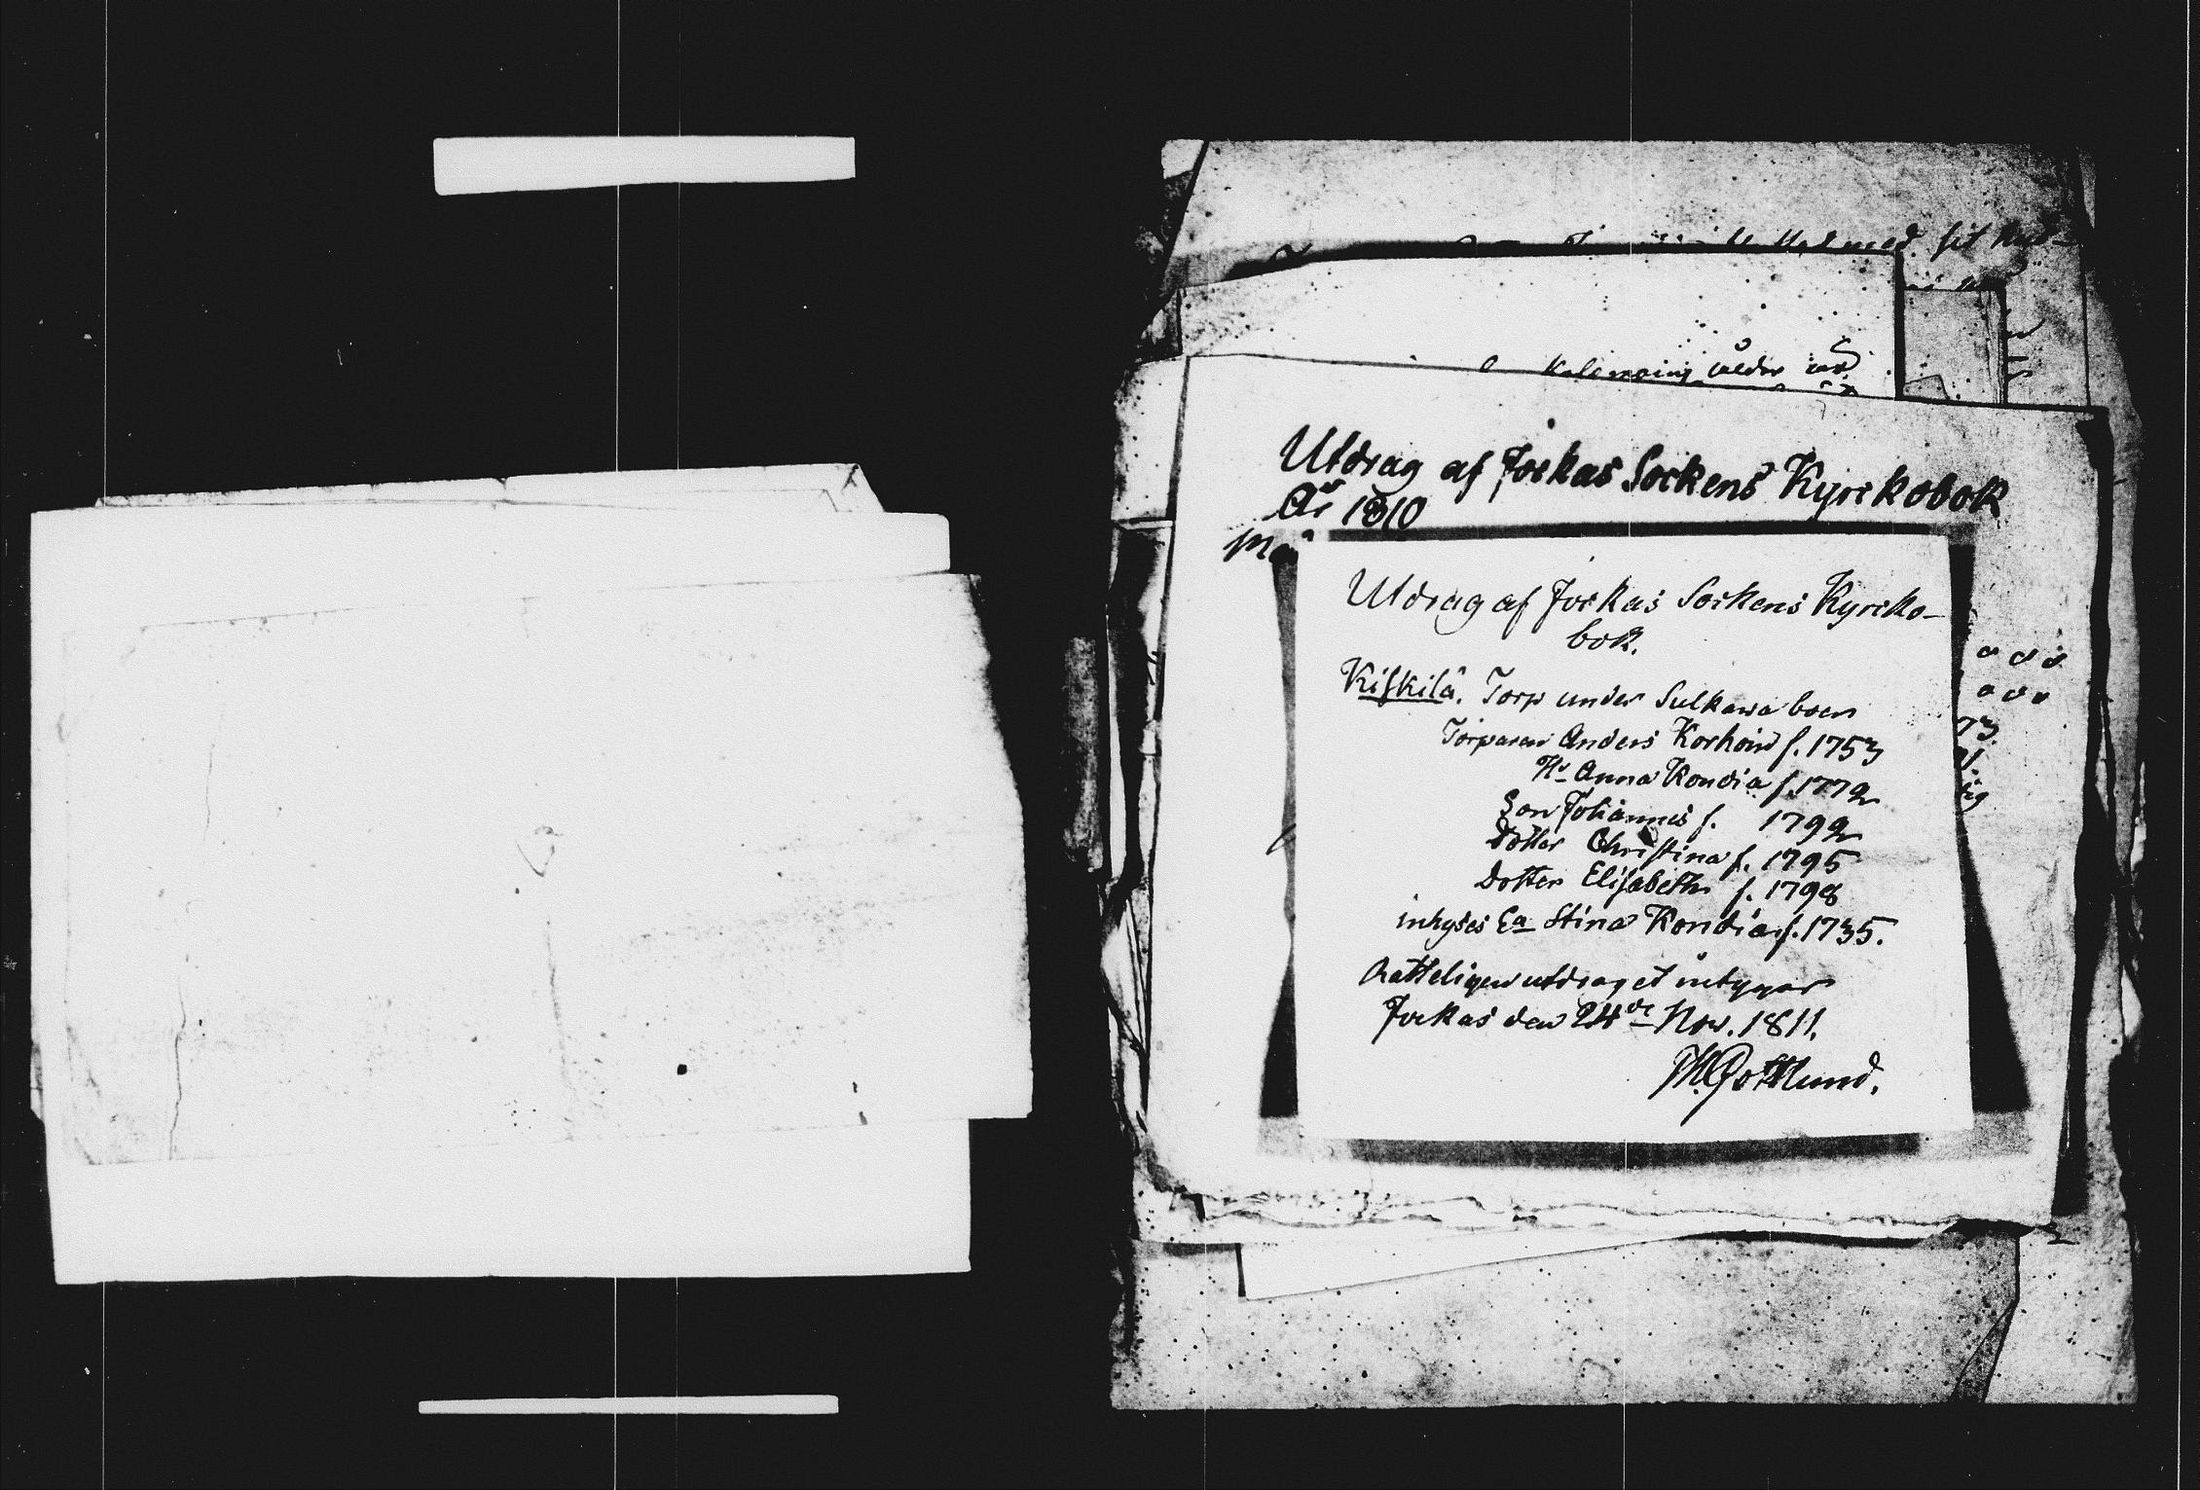 med sit
under
Utdrag af Jockas Sockens Kyrckobok
År 1810
Utdrag af Jockas Sockens Kyrcko-
bok.
Kiskilä. Torp under Sulkawa boen
Torparen Anders Korhoin f. 1753
Hu Anna Kondia f. 1772
Son Johannes f. 1792
Dotter Christina f. 1795
Dotter Elisabeth f. 1798
inhyses Ea Stina Kondia f. 1735.
Rätteligen utdraget intygar
Jockas den 24de Nov. 1811.
M. Gottlund.
73